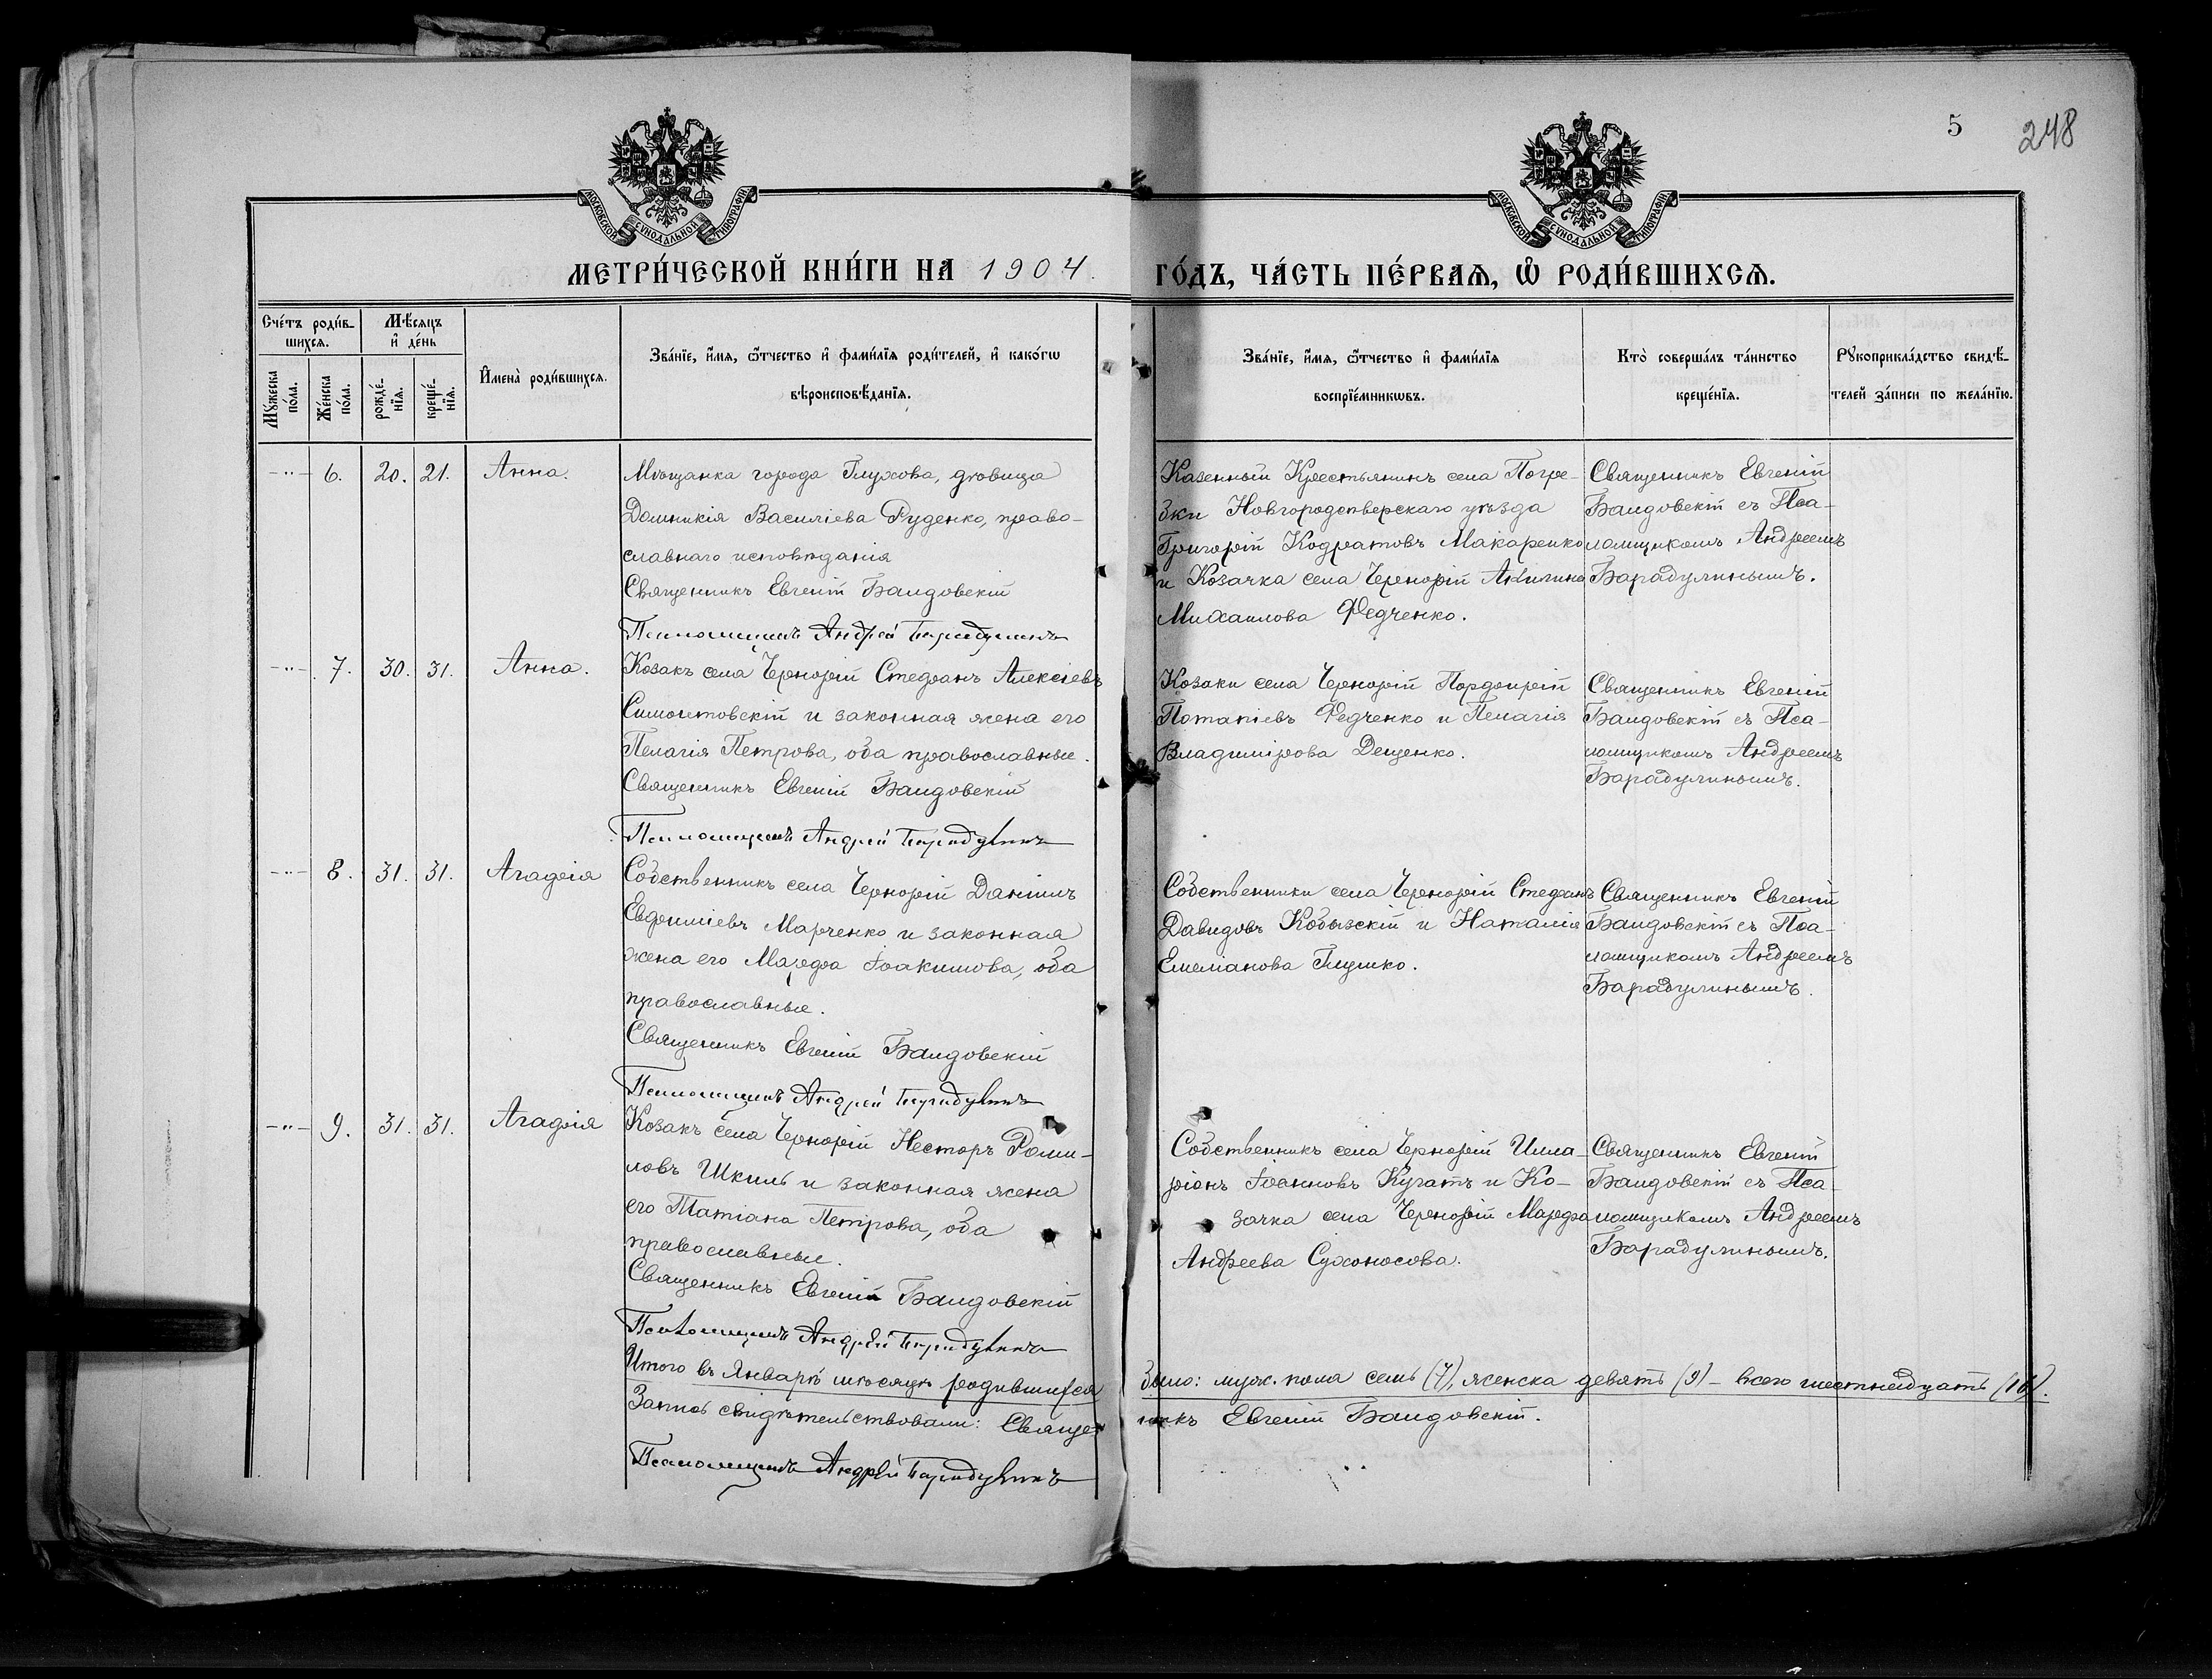 5
248
МОСКОВСКОЙ СѴНОДАЛЬНОЙ ТИПОГРАФИИ
МОСКОВСКОЙ СѴНОДАЛЬНОЙ ТИПОГРАФИИ
МЕТРИ́ЧЕСКОЙ КНИ́ГИ НА 1904. ГО́ДЪ, ЧА́СТЬ ПЕ́РВАЯ, Ѡ҆ РОДИ́ВШИХСЯ.
Сче́тъ роди́в-
шихся.
Мꙋ́жеска
по́ла.
Же́нска
по́ла.
Мѣ́сяцъ
и҆ де́нь
рожде́-
нїя.
креще́-
нїя.
И҆мена̀ роди́вшихся.
Зва́нїе, и҆́мя, ѻ҆́тчество и҆ фами́лїя роди́телей, и҆ како́гѡ
вѣроисповѣ́данїя.
Зва́нїе, и҆́мя, ѻ҆́тчество и҆ фами́лїя
воспрїе́мникѡвъ.
Кто̀ соверша́лъ та́инство
креще́нїя.
Рꙋкоприкла́дство свидѣ́-
телей за́писи по жела́нїю.
-"- 6. 20. 21. Анна.
Мѣщанка города Глухова, дѣвица
Домникія Василіева Руденко, право-
славнаго исповѣданія
Священникъ Евгеній Баидовскій
Псаломщикъ Андрей Барадулинъ
Казенный Крестьянинъ села Погре-
бки Новгородсѣверскаго уѣзда
Григорій Кодратовъ Макаренко
и Козачка села Чернорій Акилина
Михаилова Федченко.
Священникъ Евгеній
Баидовскій съ Пса-
ломщикомъ Андреемъ
Барадулинымъ.
-"- 7. 30. 31. Анна.
Козакъ села Чернорій Стефанъ Алексіевъ
Симонтовскій и законная жена его
Пелагія Петрова, оба православные.
Священникъ Евгеній Баидовскій
Псаломщикъ Андрей Барадулинъ
Козаки села Чернорій Порфирій
Потапіевъ Федченко и Пелагія
Владимірова Деценко.
Священникъ Евгеній
Баидовскій съ Пса-
ломщикомъ Андреемъ
Барадулинымъ.
-"- 8. 31. 31. Агафія
Собственникъ села Чернорій Даніилъ
Евфиміевъ Марченко и законная
жена его Марфа Іоакимова, оба
православные.
Священникъ Евгеній Баидовскій
Псаломщикъ Андрей Барадулинъ
Собственники села Чернорій Стефанъ
Давидовъ Кобызскій и Наталія
Емеліанова Глушко.
Священникъ Евгеній
Баидовскій съ Пса-
ломщикомъ Андреемъ
Барадулинымъ.
-"- 9. 31. 31. Агафія
Козакъ села Чернорій Несторъ Роми-
ловъ Шкиль и законная жена
его Татіана Петрова, оба
православные.
Священникъ Евгеній Баидовскій
Псаломщикъ Андрей Барадулинъ
Собственникъ села Чернорій Илла-
ріонъ Іоанновъ Кугатъ и Ко-
зачка села Чернорій Марфа
Андреева Сухоносова.
Священникъ Евгеній
Баидовскій съ Пса-
ломщикомъ Андреемъ
Барадулинымъ.
Итого въ Январѣ мѣсяцѣ родившихся было: муж. пола семь (7), женска девять (9) – всего шестнадцать (16).
Запись свидѣтельствовали: Священникъ Евгеній Баидовскій.
Псаломщикъ Андрей Барадулинъ